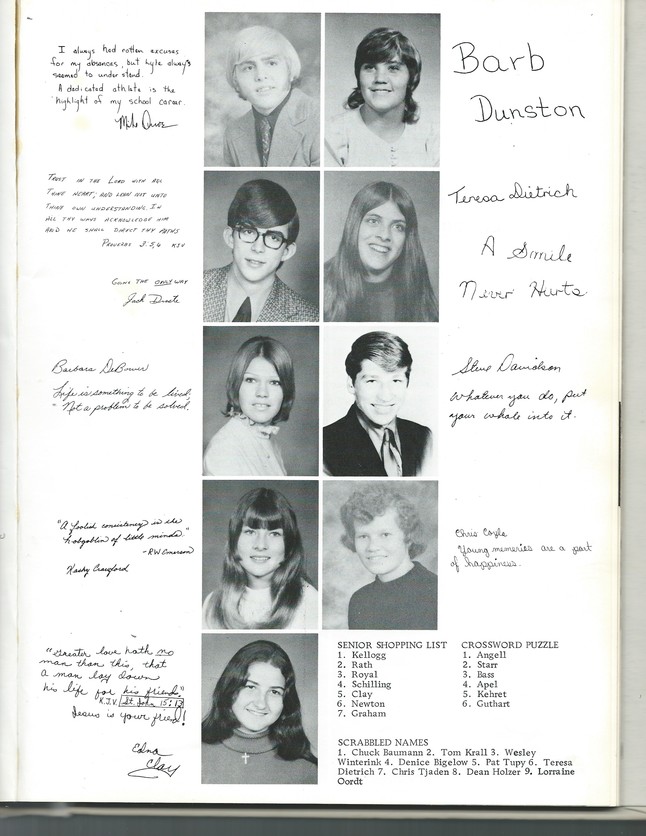 I always had rotten excuses
for my absences, but Lyle always
seemed to understand.
A dedicated athlete is the
highlight of my school career.
Mike
Barb
Dunston
TRUST IN THE LORD WITH ALL
THINE HEART; AND LEAN NOT UNTO
THINE OWN UNDERSTANDING. IN
ALL THY WAYS ACKNOWLEDGE HIM
AND HE SHALL DIRECT THY PATHS
PROVERBS 3:5,6 KJV
GOING THE ONLY WAY
Jack
Teresa Dietrich
A Smile
Never Hurts
Barbara DeBower
Life is something to be lived.
Not a problem to be solved.
Steve Davidson
Whatever you do, put
your whole into it.
"A foolish consistency is the
hobgoblin of little minds."
-RW Emerson
Kathy Crawford
Chris Coyle
Young memories are a part
of happiness.
"Greater love hath no
man than this, that
a man lay down
his life for his friends."
K.J.V. St. John 15:13
Jesus is your friend!
Edna
Clay
SENIOR SHOPPING LIST
1. Kellogg
2. Rath
3. Royal
4. Schilling
5. Clay
6. Newton
7. Graham
CROSSWORD PUZZLE
1. Angell
2. Starr
3. Bass
4. Apel
5. Kehret
6. Guthart
SCRABBLED NAMES
1. Chuck Baumann 2. Tom Krall 3. Wesley
Winterink 4. Denice Bigelow 5. Pat Tupy 6. Teresa
Dietrich 7. Chris Tjaden 8. Dean Holzer 9. Lorraine
Oordt